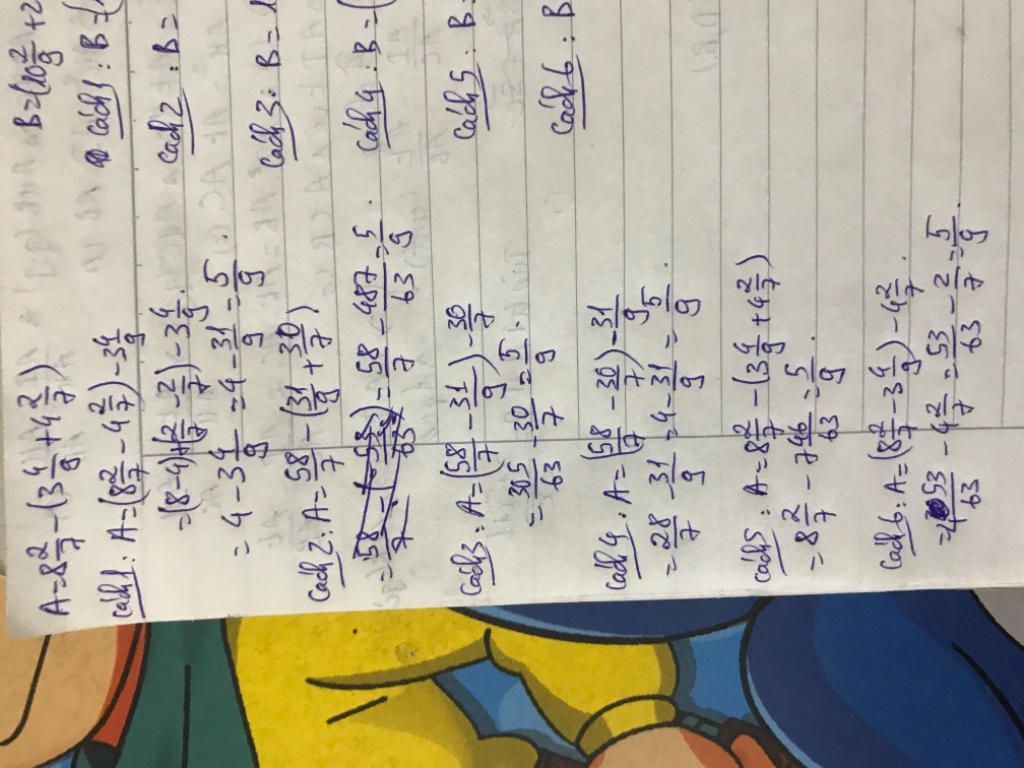 A = 8 2/7 - (3 4/9 + 4 2/7)
Cách 1 : A = (8 2/7 - 4 2/7) - 3 4/9
= (8 - 4) + (2/7 - 2/7) - 3 4/9
= 4 - 3 4/9 = 4 - 31/9 = 5/9 .
Cách 2 : A = 58/7 - (31/9 + 30/7)
= 58/7 - 487/63 = 5/9 .
Cách 3 : A = (58/7 - 31/9) - 30/7
= 305/63 - 30/7 = 5/9 .
Cách 4 : A = (58/7 - 30/7) - 31/9
= 28/7 - 31/9 = 4 - 31/9 = 5/9 .
Cách 5 : A = 8 2/7 - (3 4/9 + 4 2/7)
= 8 2/7 - 7 46/63 = 5/9 .
Cách 6 : A = (8 2/7 - 3 4/9) - 4 2/7 .
= 4 53/63 - 4 2/7 = 53/63 - 2/7 = 5/9 .
B = (10 2/9 + 2
Cách 1 : B = (
Cách 2 : B =
Cách 3 : B =
Cách 4 : B = (
Cách 5 : B =
Cách 6 : B